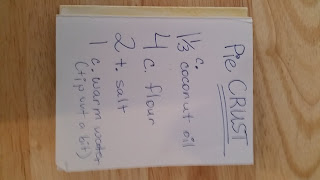 Pie CRUST
1⅓ c. coconut oil
4 c. flour
2 t. salt
1 c. warm water
(tip out a bit)